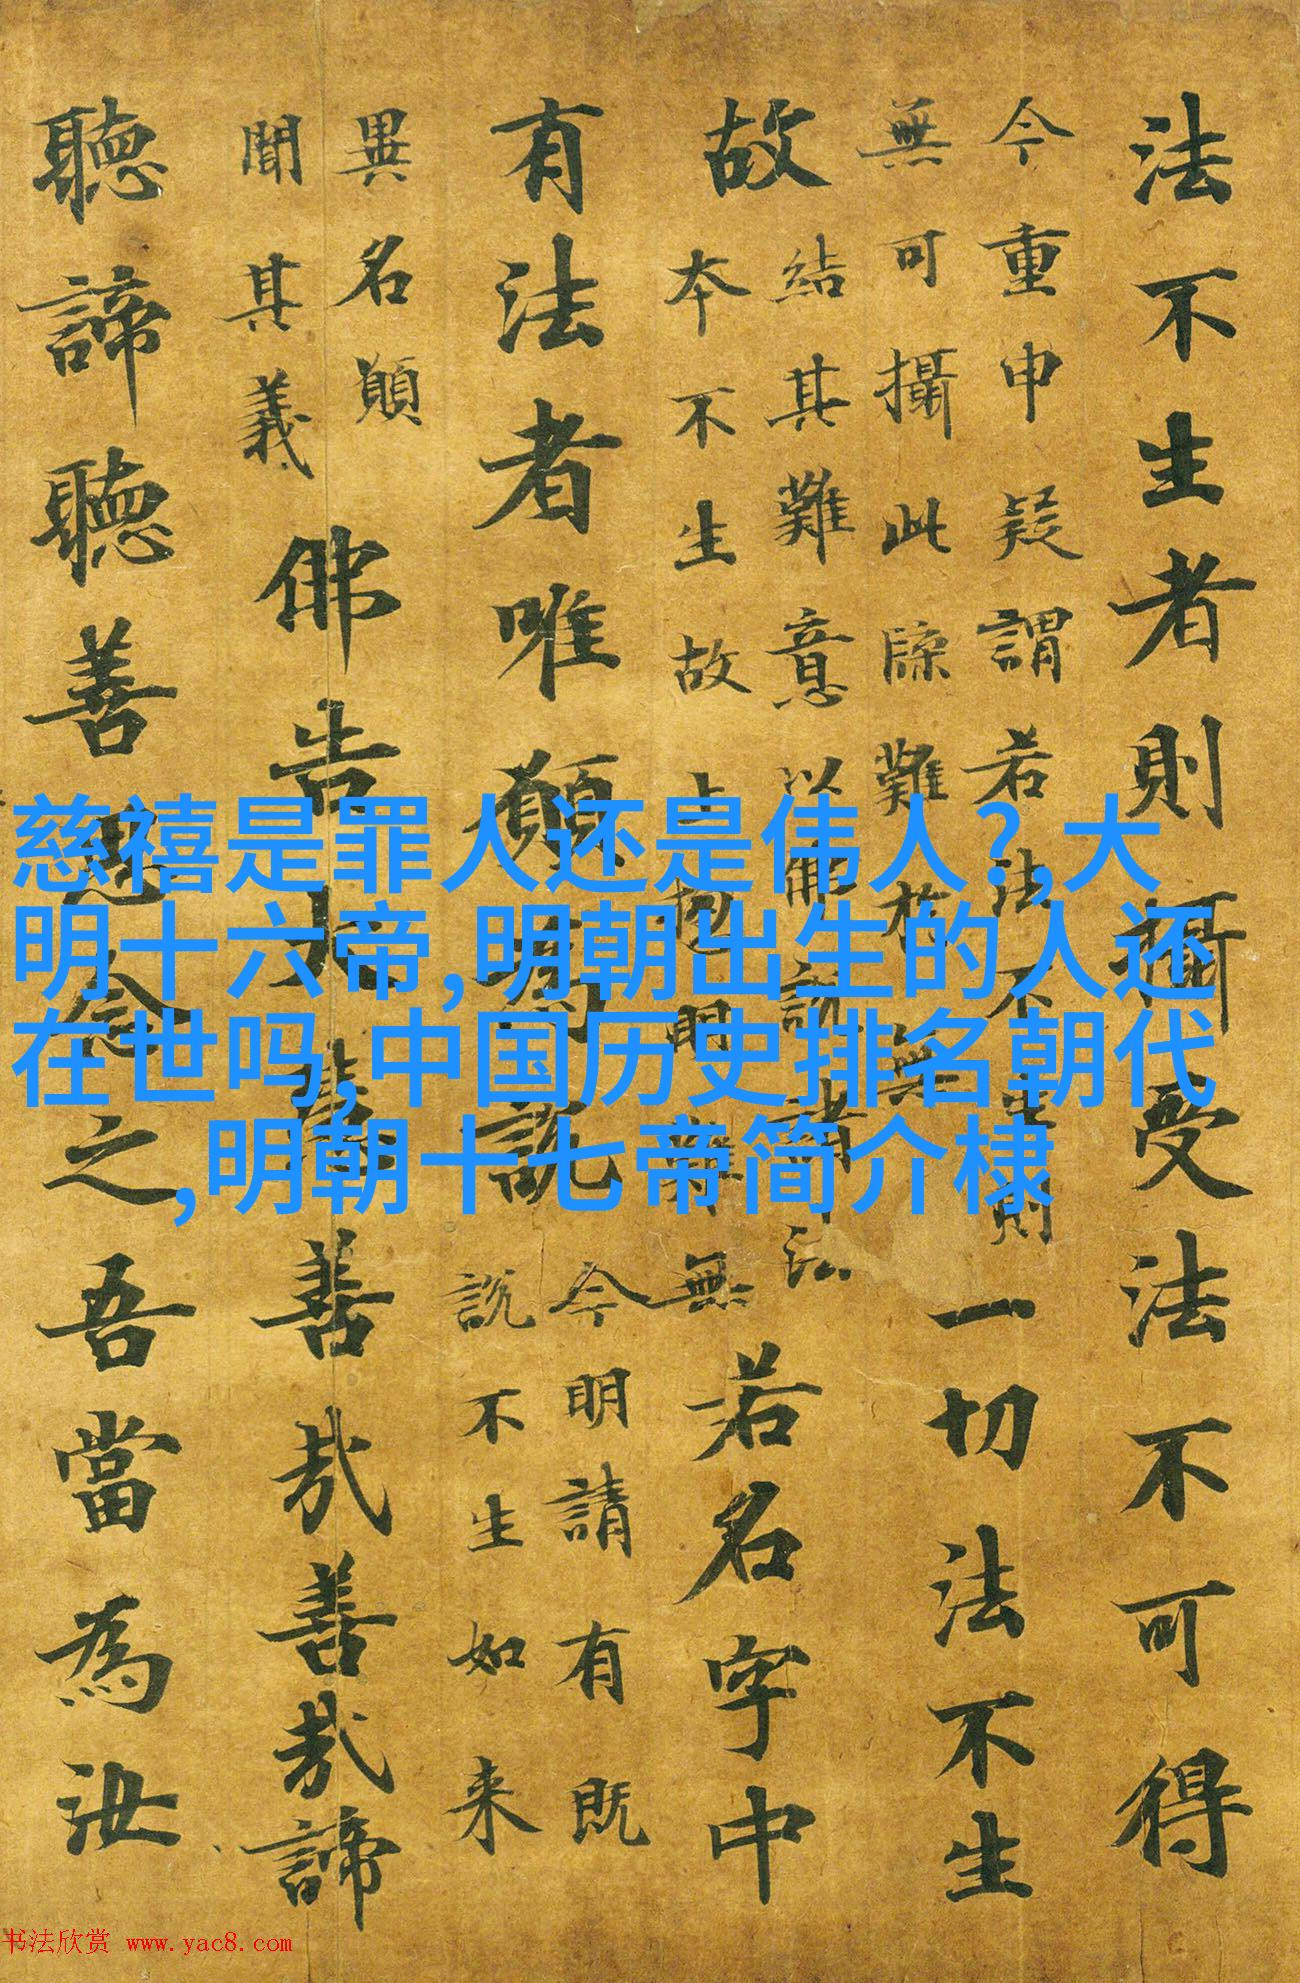 法不生者則攝受法不可得
今重申疑謂若法不生則
無可攝此牒難故無
一切法不生
故
結其難意以説諸法
本不生故明難無
若名字中
有法者唯願為說
今明請有既
說不生如来
異名願
聞其義
佛告大慧善哉善哉諦
聽諦聽善思念之吾當為汝
慈禧是罪人还是伟人?,大
明十六帝,明朝出生的人还
在世吗,中国历史排名朝代
,明朝十七帝简介棣
书法欣赏 www.yac8.com